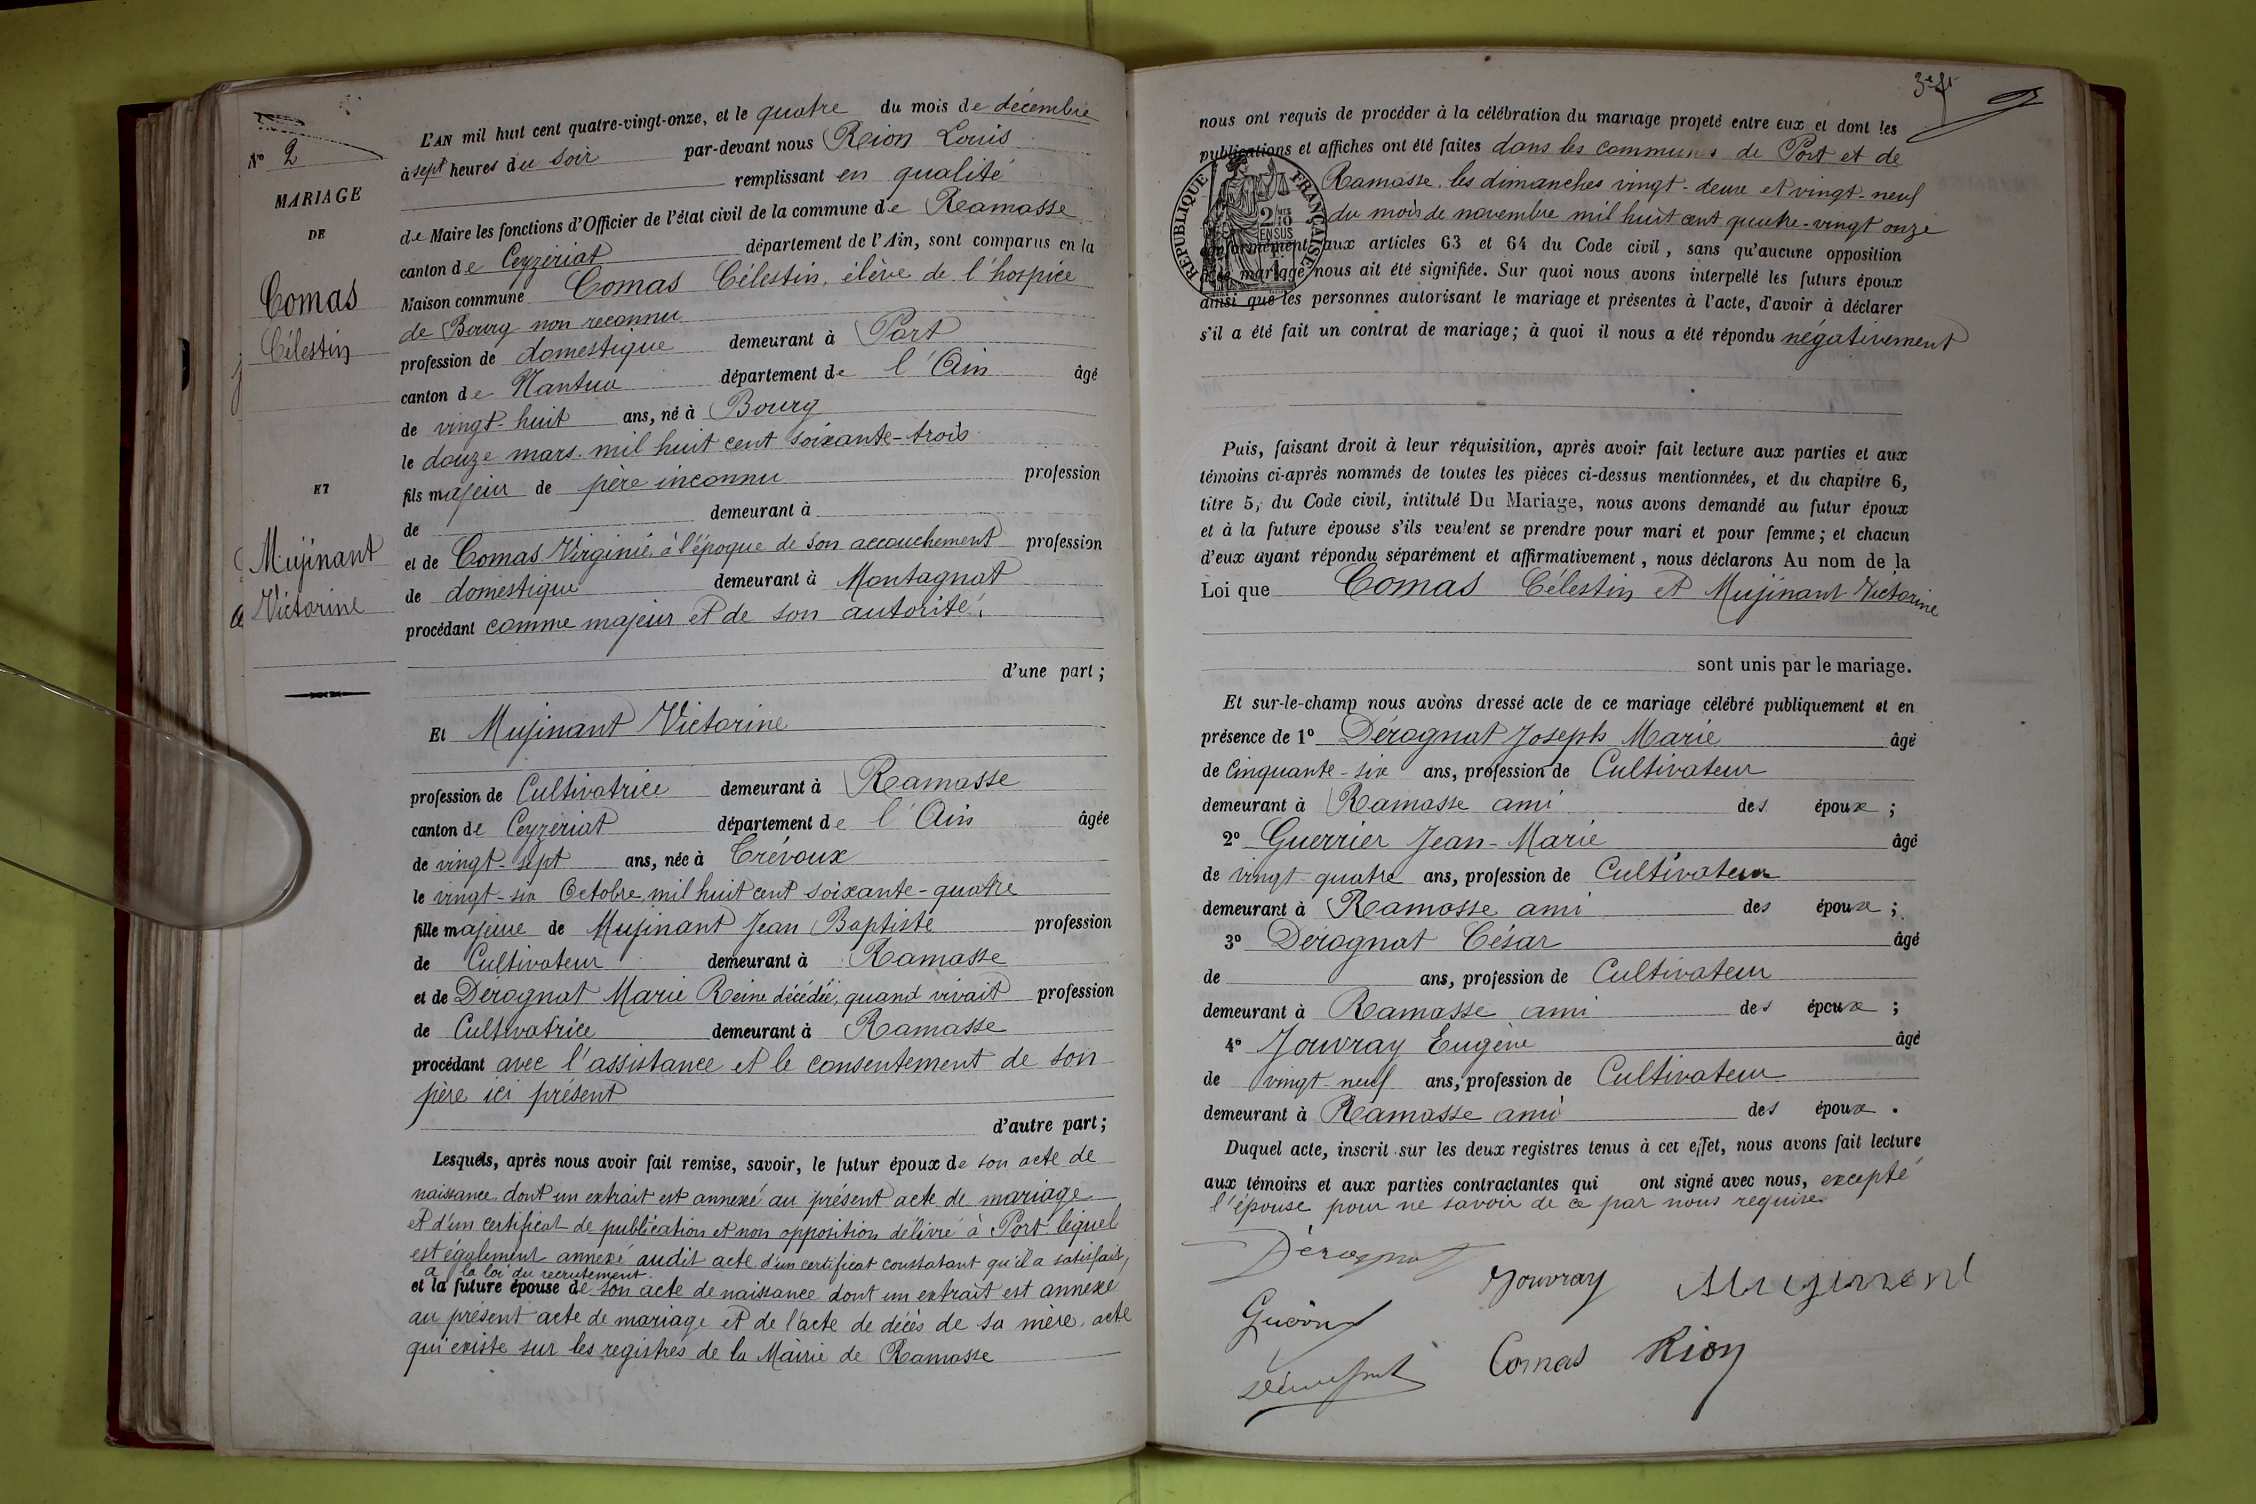 N° 2
MARIAGE
DE
Comas
Célestin
ET
Mujinant
Victorine
L'AN mil huit cent quatre-vingt-onze, et le quatre du mois de décembre
à sept heures du soir par-devant nous Rion Louis
remplissant en qualité
de Maire les fonctions d'Officier de l'état civil de la commune de Ramasse
canton de Ceyzériat département de l'Ain, sont comparus en la
Maison commune Comas Célestin, élève de l'hospice
de Bourg non reconnu
profession de domestique demeurant à Port
canton de Nantua département de l'Ain âgé
de vingt-huit ans, né à Bourg
le douze mars mil huit cent soixante-trois
fils majeur de père inconnu profession
de demeurant à
et de Comas Virginie à l'époque de son accouchement profession
de domestique demeurant à Montagnat
procédant comme majeur et de son autorité,
d'une part ;
Et Mujinant Victorine
profession de Cultivatrice demeurant à Ramasse
canton de Ceyzériat département de l'Ain âgée
de vingt-sept ans, née à Trévoux
le vingt-six Octobre mil huit cent soixante-quatre
fille majeure de Mujinant Jean Baptiste profession
de Cultivateur demeurant à Ramasse
et de Dérognat Marie Reine décédée, quand vivait profession
de Cultivatrice demeurant à Ramasse
procédant avec l'assistance et le consentement de son
père ici présent
d'autre part ;
Lesquels, après nous avoir fait remise, savoir, le futur époux de son acte de
naissance dont un extrait est annexé au présent acte de mariage
et d'un certificat de publication et non opposition délivré à Port lequel
est également annexé audit acte d'un certificat constatant qu'il a satisfait,
a la loi du recrutement
et la future épouse de son acte de naissance dont un extrait est annexé
au présent acte de mariage et de l'acte de décès de sa mère, acte
qui existe sur les registres de la Mairie de Ramasse
nous ont requis de procéder à la célébration du mariage projeté entre eux et dont les
publications et affiches ont été faites dans les communes de Port et de
Ramasse les dimanches vingt-deux et vingt-neuf
du mois de novembre mil huit cent quatre-vingt onze
RÉPUBLIQUE FRANÇAISE
conformément aux articles 63 et 64 du Code civil, sans qu'aucune opposition
mariage nous ait été signifiée. Sur quoi nous avons interpellé les futurs époux
ainsi que les personnes autorisant le mariage et présentes à l'acte, d'avoir à déclarer
s'il a été fait un contrat de mariage; à quoi il nous a été répondu négativement
Puis, faisant droit à leur réquisition, après avoir fait lecture aux parties et aux
témoins ci-après nommés de toutes les pièces ci-dessus mentionnées, et du chapitre 6,
titre 5, du Code civil, intitulé Du Mariage, nous avons demandé au futur époux
et à la future épouse s'ils veulent se prendre pour mari et pour femme; et chacun
d'eux ayant répondu séparément et affirmativement, nous déclarons Au nom de la
Loi que Comas Célestin et Mujinant Victorine
sont unis par le mariage.
Et sur-le-champ nous avons dressé acte de ce mariage célébré publiquement et en
présence de 1° Dérognat Joseph Marie âgé
de Cinquante-six ans, profession de Cultivateur
demeurant à Ramasse ami des époux ;
2° Guerrier Jean-Marie âgé
de vingt quatre ans, profession de Cultivateur
demeurant à Ramasse ami des époux ;
3° Dérognat César âgé
de ans, profession de Cultivateur
demeurant à Ramasse ami des époux ;
4° Jouvray Eugène âgé
de vingt-neuf ans, profession de Cultivateur
demeurant à Ramasse ami des époux .
Duquel acte, inscrit sur les deux registres tenus à cet effet, nous avons fait lecture
aux témoins et aux parties contractantes qui ont signé avec nous, excepté
l'épouse pour ne savoir de ce par nous requise
Dérognat
Jouvray Mujinant
Comas Rion